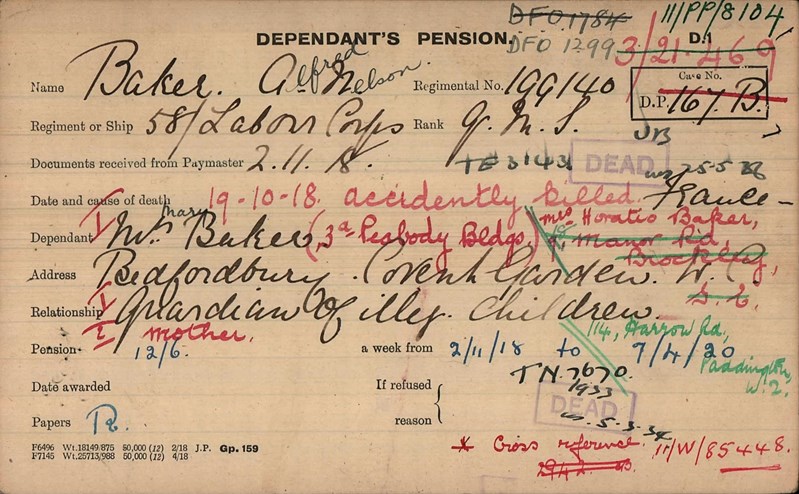 DFO 1784 11/PP/8104,
DEPENDANT'S PENSION. DFO 1299 3/21.469 D.1
Name Baker. Alfred Nelson. Regimental No. 199140 Case No.
D.P. 167 B.
Regiment or Ship 58/Labour Corps Rank Q.M.S. JB
Documents received from Paymaster 2.11.18. TE 3143 DEAD 25-5-
Date and cause of death 19-10-18. accidently killed. France –
Dependant I Mrs Mary Baker (3a Peabody Bldgs.) Mrs Horatio Baker,
Manor Rd,
Brockley,
Address Bedfordbury. Covent Garden. W.C.
S.E.
Relationship I Guardian of illeg. children.
2 mother. 114, Harrow Rd,
Paddington,
W.2.
Pension 12/6. a week from 2/11/18 to 7/4/20
Date awarded If refused T.N. 7670.
1933
DEAD
Papers reason 5.3.34
F6496 Wt.18149/875 50,000 (12) 2/18 J.P. Gp. 159
F7145 Wt.25713/988 50,000 (12) 4/18
* Cross reference. 11/W/85448.